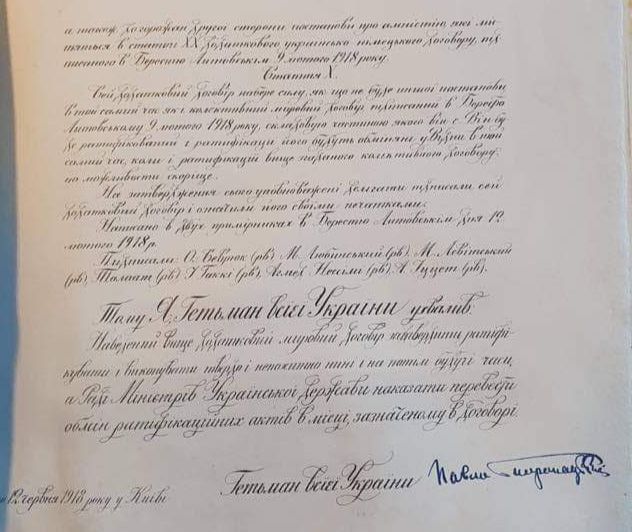 а також до горожан другої сторони постанови про амністію, які мі-
стяться в статті XX додаткового українсько-німецького договору, під-
писаного в Берестю Литовськім 9 лютого 1918 року.
Стаття X.
Сей додатковий договір набере силу, як що не буде иншої постанови
в той самий час як і колективний мировий договір підписаний в Берестю
Литовському 9 лютого 1918 року, складовую частиною якого він є. Він бу-
де ратифікований і ратифікації його будуть обміняні у Відні в той
самий час, коли і ратифікації вище наданого колективного договору,
по можливости скорше.
На затвердження сього уповноважені делегати підписали сей
додатковий договір і означили його своїми печатками.
Написано в двух примірниках в Берестю Литовськім дня 12
лютого 1918 р.
Підписали: О. Севрюк (рв) М. Любінський (рв), М. Левітський
(рв), Талаат (рв), І. Гаккі (рв), Ахмед Нессімі (рв), А. Іццет (рв).
Тому Я, Гетьман всієї України ухвалив:
Наведений вище додатковий мировий договір затвердити ратифі-
кувати і виконувати твердо і непохитно нині і на потім будучі часи,
а Раді Міністрів Української Держави наказати перевести
обмін ратифікаційних актів в місці, зазначеному в договорі.
Гетьман всієї України Павло Скоропадський
12 червня 1918 року у Київі